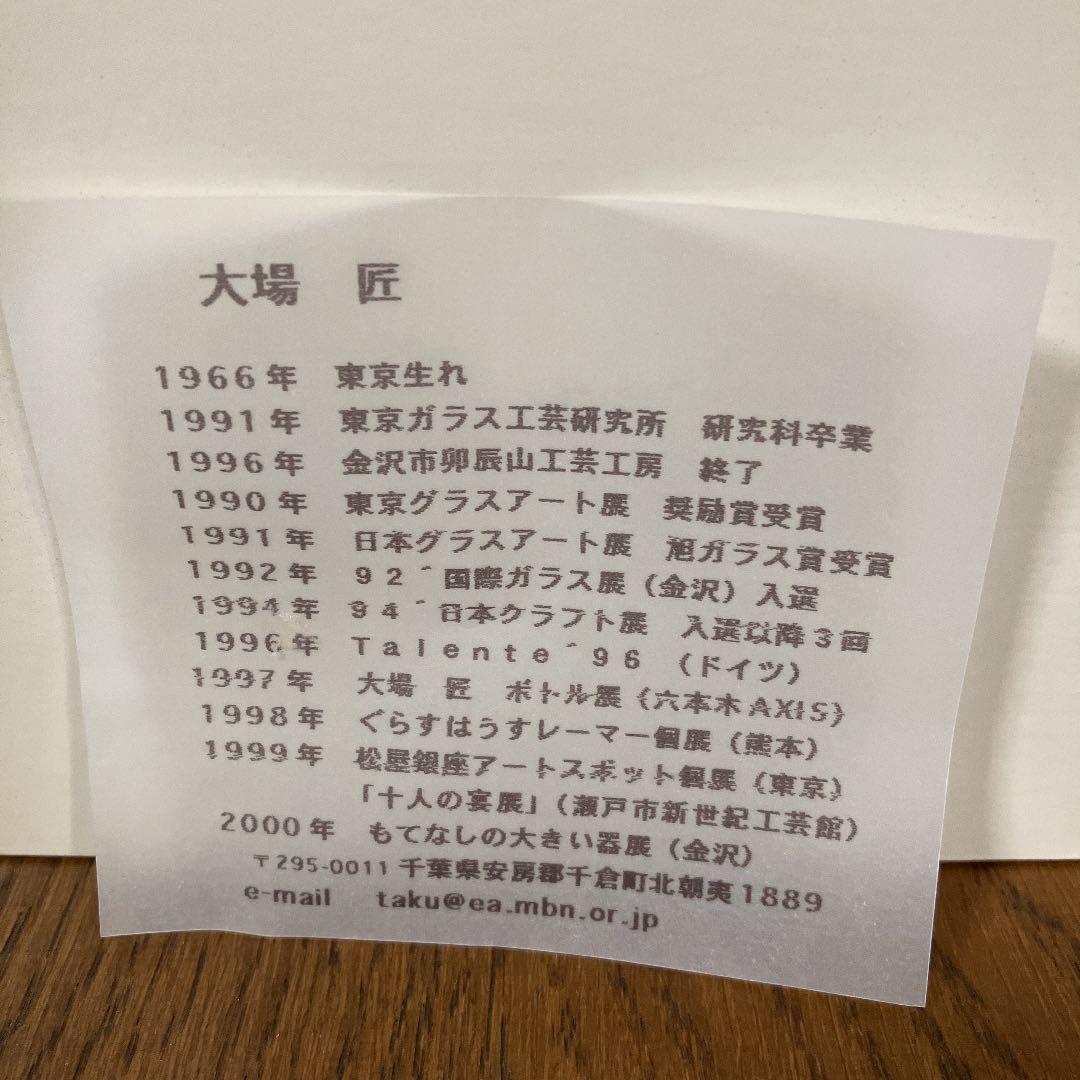 大場　匠
1966年　東京生れ
1991年　東京ガラス工芸研究所　研究科卒業
1996年　金沢市卯辰山工芸工房　終了
1990年　東京グラスアート展　奨励賞受賞
1991年　日本グラスアート展　旭ガラス賞受賞
1992年　92´国際ガラス展（金沢）入選
1994年　94´日本クラフト展　入選以降3回
1996年　Talente´96　（ドイツ）
1997年　大場　匠　ボトル展（六本木AXIS）
1998年　ぐらすはうすレーマー個展（熊本）
1999年　松屋銀座アートスポット個展（東京）
「十人の宴展」（瀬戸市新世紀工芸館）
2000年　もてなしの大きい器展（金沢）
〒295-0011千葉県安房郡千倉町北朝夷1889
e-mail　taku@ea.mbn.or.jp